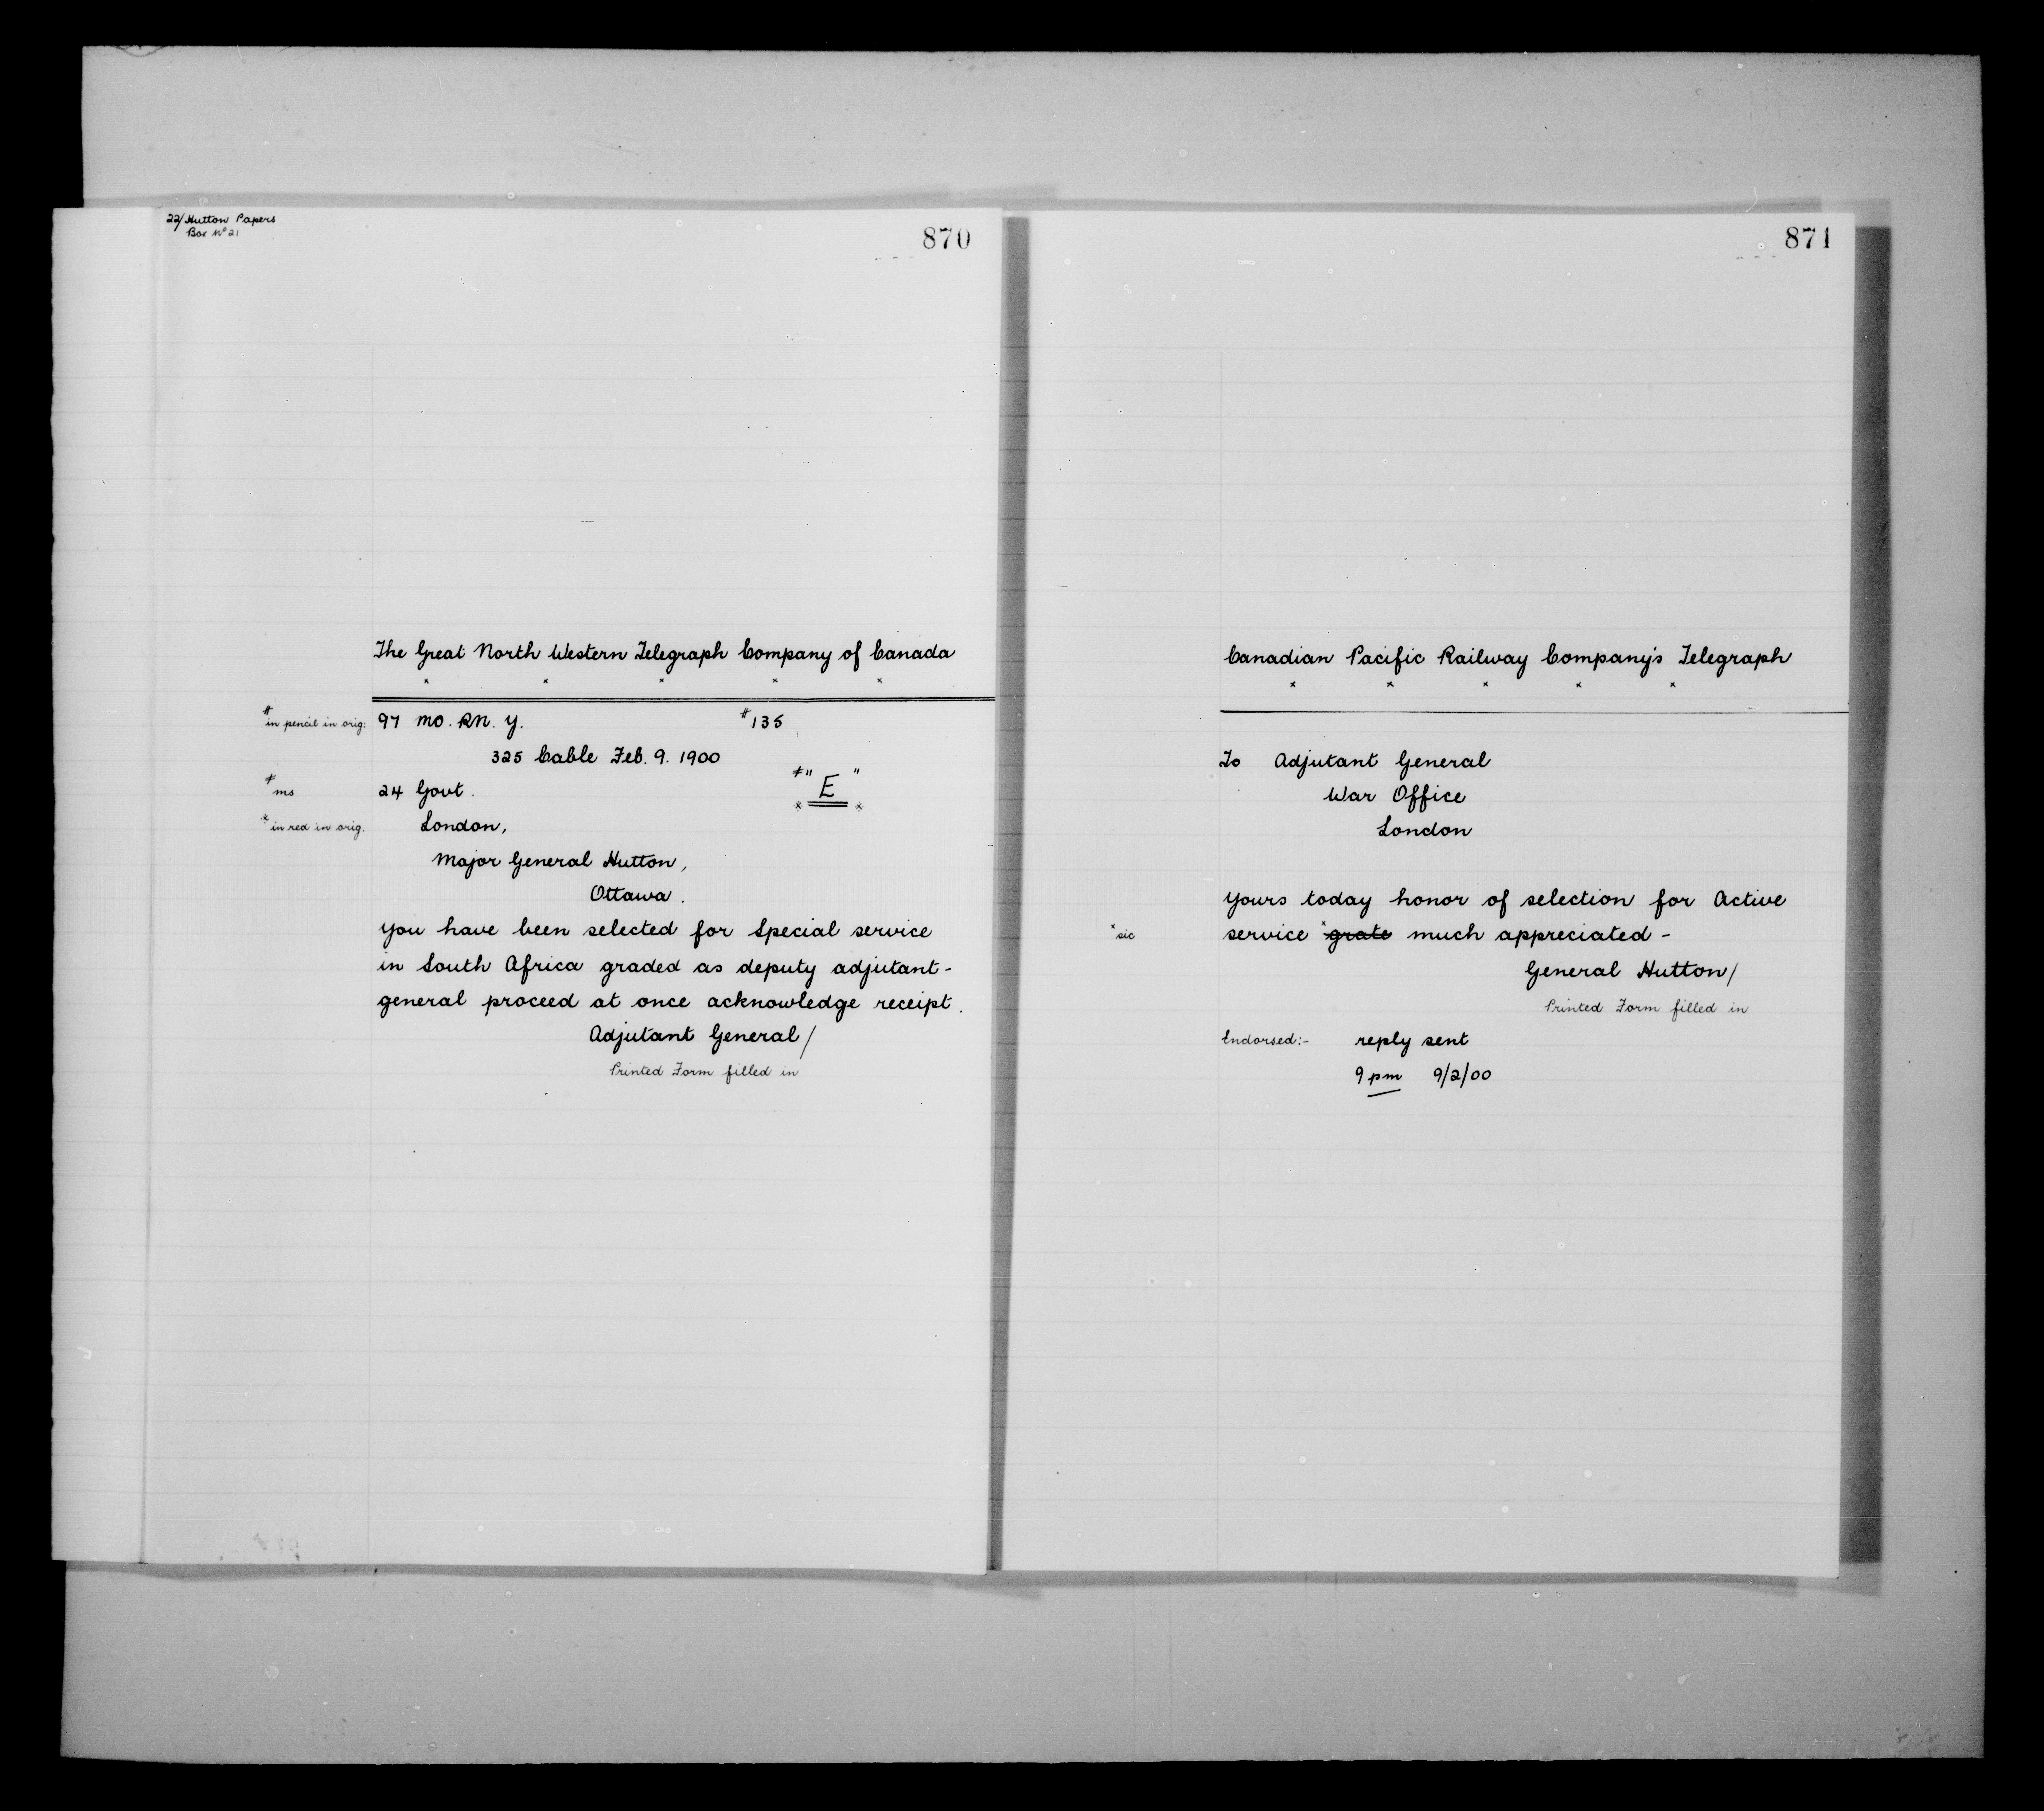 22/ Hutton Papers
Box No 21
870
The Great North Western Telegraph Company of Canada
x x x x x
# in pencil in orig: 97 MO. RN. Y. #135
325 Cable Feb. 9. 1900
≠ ms 24 Govt. ≠" E "
x in red in orig. London, x x
Major General Hutton,
Ottawa.
You have been selected for Special service
in South Africa graded as deputy adjutant-
general proceed at once acknowledge receipt.
Adjutant General/
Printed Form filled in
871
Canadian Pacific Railway Company's Telegraph
x x x x x
To Adjutant General
War Office
London
Yours today honor of selection for Active
x sic service x grate much appreciated -
General Hutton/
Printed Form filled in
Endorsed:- reply sent
9 pm 9/2/00